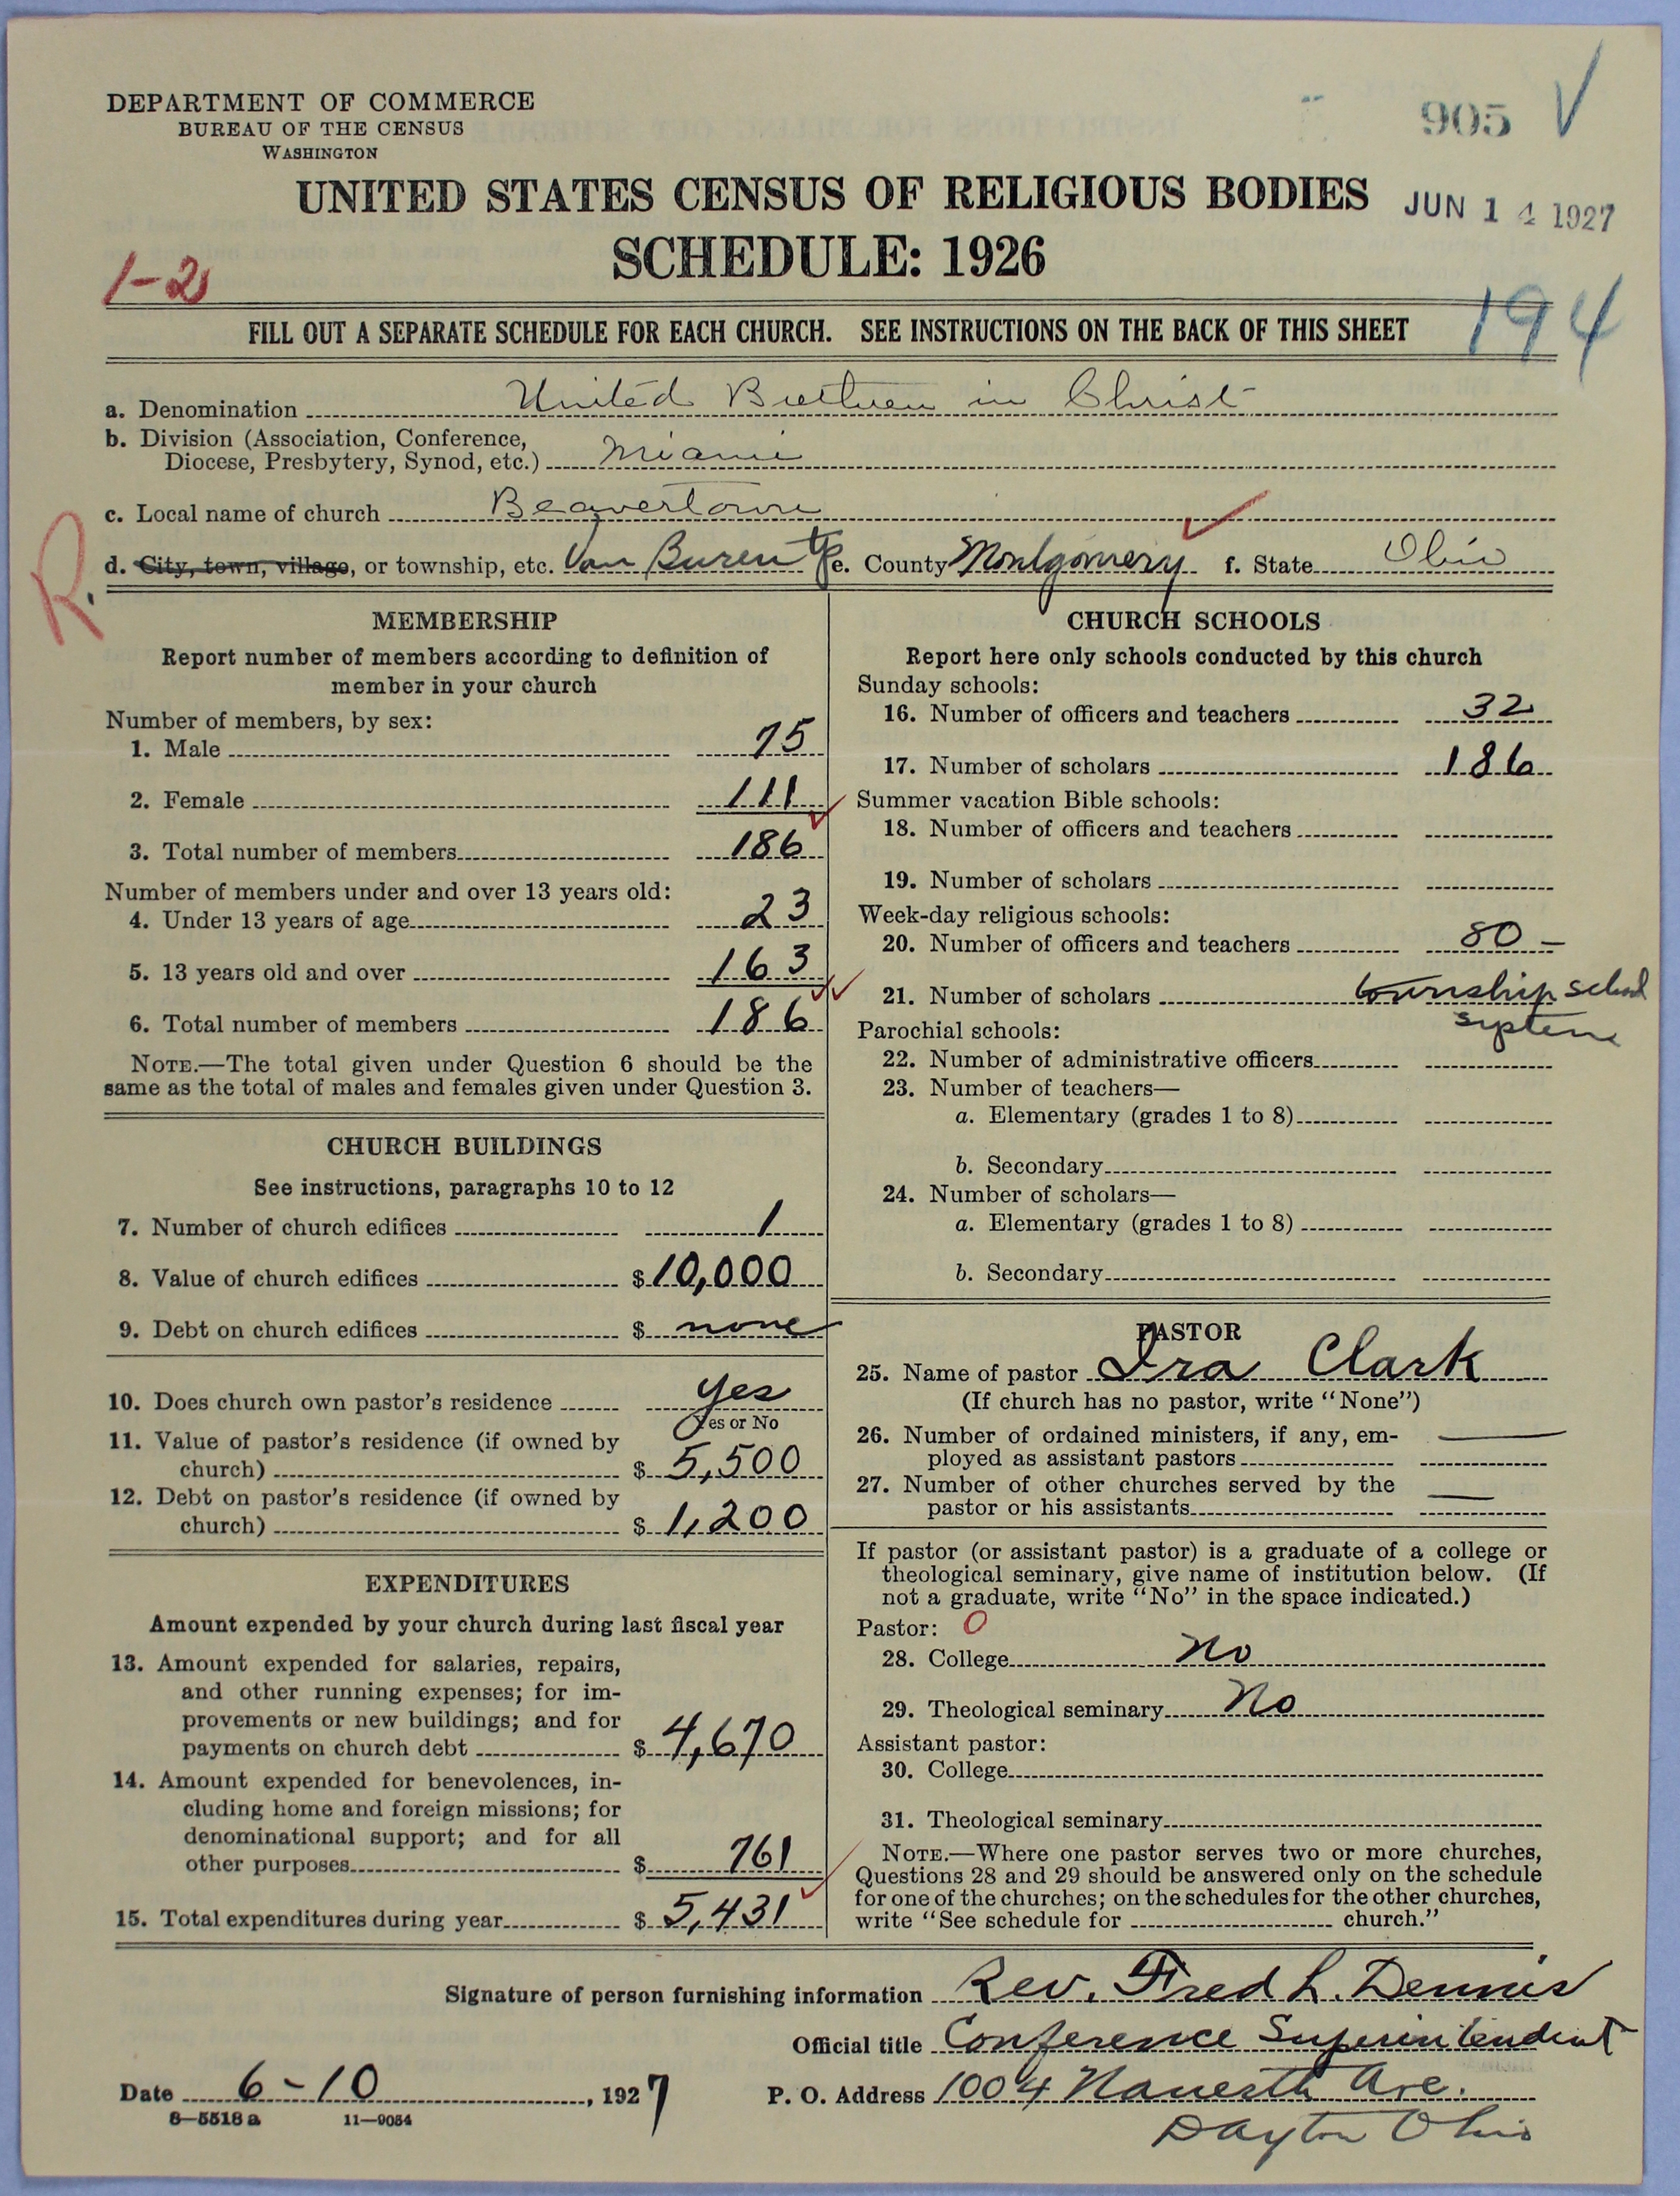 DEPARTMENT OF COMMERCE
BUREAU OF THE CENSUS
WASHINGTON
905
UNITED STATES CENSUS OF RELIGIOUS BODIES
JUN 14 1927
SCHEDULE: 1926
1-2
194
FILL OUT A SEPARATE SCHEDULE FOR EACH CHURCH. SEE INSTRUCTIONS ON THE BACK OF THIS SHEET
a. Denomination United Brethren in Christ
b. Division (Association, Conference,
Diocese, Presbytery, Synod, etc.) Miami
c. Local name of church Beavertown
R.
d. City, town, village, or township, etc. Van Buren tp e. County Montgomery f. State Ohio
MEMBERSHIP
Report number of members according to definition of
member in your church
Number of members, by sex:
1. Male 75
2. Female 111
3. Total number of members 186
Number of members under and over 13 years old:
4. Under 13 years of age 23
5. 13 years old and over 163
6. Total number of members 186
NOTE.—The total given under Question 6 should be the
same as the total of males and females given under Question 3.
CHURCH BUILDINGS
See instructions, paragraphs 10 to 12
7. Number of church edifices 1
8. Value of church edifices $ 10,000
9. Debt on church edifices $ none
10. Does church own pastor's residence yes
Yes or No
11. Value of pastor's residence (if owned by
church) $ 5,500
12. Debt on pastor's residence (if owned by
church) $ 1,200
EXPENDITURES
Amount expended by your church during last fiscal year
13. Amount expended for salaries, repairs,
and other running expenses; for im-
provements or new buildings; and for
payments on church debt $ 4,670
14. Amount expended for benevolences, in-
cluding home and foreign missions; for
denominational support; and for all
other purposes $ 761
15. Total expenditures during year $ 5,431
CHURCH SCHOOLS
Report here only schools conducted by this church
Sunday schools:
16. Number of officers and teachers 32
17. Number of scholars 186
Summer vacation Bible schools:
18. Number of officers and teachers
19. Number of scholars
Week-day religious schools:
20. Number of officers and teachers 80 –
21. Number of scholars township school
system
Parochial schools:
22. Number of administrative officers
23. Number of teachers—
a. Elementary (grades 1 to 8)
b. Secondary
24. Number of scholars—
a. Elementary (grades 1 to 8)
b. Secondary
PASTOR
25. Name of pastor Ira Clark
(If church has no pastor, write "None")
26. Number of ordained ministers, if any, em-
ployed as assistant pastors —
27. Number of other churches served by the
pastor or his assistants —
If pastor (or assistant pastor) is a graduate of a college or
theological seminary, give name of institution below. (If
not a graduate, write "No" in the space indicated.)
Pastor: O
28. College No
29. Theological seminary No
Assistant pastor:
30. College
31. Theological seminary
NOTE.—Where one pastor serves two or more churches,
Questions 28 and 29 should be answered only on the schedule
for one of the churches; on the schedules for the other churches,
write "See schedule for church."
Signature of person furnishing information Rev. Fred L. Dennis
Official title Conference Superintendent
Date 6-10, 1927
P. O. Address 1004 Ave.
Dayton Ohio
8—5518 a 11—9054